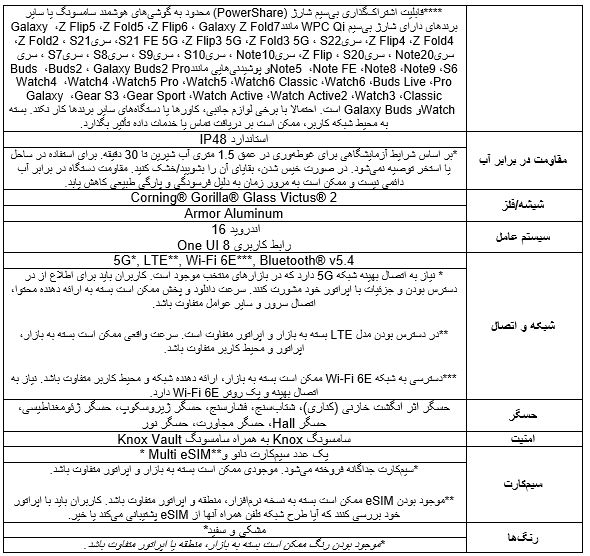 ****قابلیت اشتراک‌گذاری بی‌سیم شارژ (PowerShare) محدود به گوشی‌های هوشمند سامسونگ یا سایر
برندهای دارای شارژ بی‌سیم WPC Qi مانند Galaxy Z Fold7 ،Z Flip6 ،Z Fold5 ،Z Flip5 ،Galaxy
Z Fold4 ،Z Flip4 ،سری S22، Z Fold3 5G ،Z Flip3 5G ،S21 FE 5G، سری S21، Z Fold2،
سری Note20، سری S20، Z Flip ،سری Note10، سری S10، سری S9، سری S8، سری S7، سری
S6، Note9 ،Note8 ،Note FE ،Note5 و پوشیدنی‌هایی مانند Galaxy Buds2 Pro ،Buds2 ،Buds
Pro ،Buds Live ،Watch6 ،Watch6 Classic ،Watch5 ،Watch5 Pro ،Watch4 ،Watch4
Classic ،Watch3 ،Watch Active2 ،Watch Active ،Gear Sport ،Gear S3 ،Galaxy
Watch و Galaxy Buds است. احتمالا با برخی لوازم جانبی، کاورها یا دستگاه‌های سایر برندها کار نکند. بسته
به محیط شبکه کاربر، ممکن است بر دریافت تماس یا خدمات داده تأثیر بگذارد.
مقاومت در برابر آب
استاندارد IP48
*بر اساس شرایط آزمایشگاهی برای غوطه‌وری در عمق 1.5 متری آب شیرین تا 30 دقیقه. برای استفاده در ساحل
یا استخر توصیه نمی‌شود. در صورت خیس شدن، بقایای آن را بشویید/خشک کنید. مقاومت دستگاه در برابر آب
دائمی نیست و ممکن است به مرور زمان به دلیل فرسودگی و پارگی طبیعی کاهش یابد.
شیشه/فلز
Corning® Gorilla® Glass Victus® 2
Armor Aluminum
سیستم عامل
اندروید 16
رابط کاربری One UI 8
شبکه و اتصال
5G*, LTE**, Wi-Fi 6E***, Bluetooth® v5.4
* نیاز به اتصال بهینه شبکه 5G دارد که در بازارهای منتخب موجود است. کاربران باید برای اطلاع از در
دسترس بودن و جزئیات با اپراتور خود مشورت کنند. سرعت دانلود و پخش ممکن است بسته به ارائه دهنده محتوا،
اتصال سرور و سایر عوامل متفاوت باشد.
**در دسترس بودن مدل LTE بسته به بازار و اپراتور متفاوت است. سرعت واقعی ممکن است بسته به بازار،
اپراتور و محیط کاربر متفاوت باشد.
***دسترسی به شبکه Wi-Fi 6E ممکن است بسته به بازار، ارائه دهنده شبکه و محیط کاربر متفاوت باشد. نیاز به
اتصال بهینه و یک روتر Wi-Fi 6E دارد.
حسگر
حسگر اثر انگشت خازنی (کناری)، شتاب‌سنج، فشارسنج، حسگر ژیروسکوپ، حسگر ژئومغناطیسی،
حسگر Hall، حسگر مجاورت، حسگر نور
امنیت
سامسونگ Knox به همراه سامسونگ Knox Vault
سیم‌کارت
یک عدد سیم‌کارت نانو و Multi eSIM** *
*سیم‌کارت جداگانه فروخته می‌شود. موجودی ممکن است بسته به بازار و اپراتور متفاوت باشد.
**موجود بودن eSIM ممکن است بسته به نسخه نرم‌افزار، منطقه و اپراتور متفاوت باشد. کاربران باید با اپراتور
خود بررسی کنند که آیا طرح شبکه تلفن همراه آنها از eSIM پشتیبانی می‌کند یا خیر.
رنگ‌ها
مشکی و سفید*
*موجود بودن رنگ ممکن است به بازار، منطقه یا اپراتور متفاوت باشد.